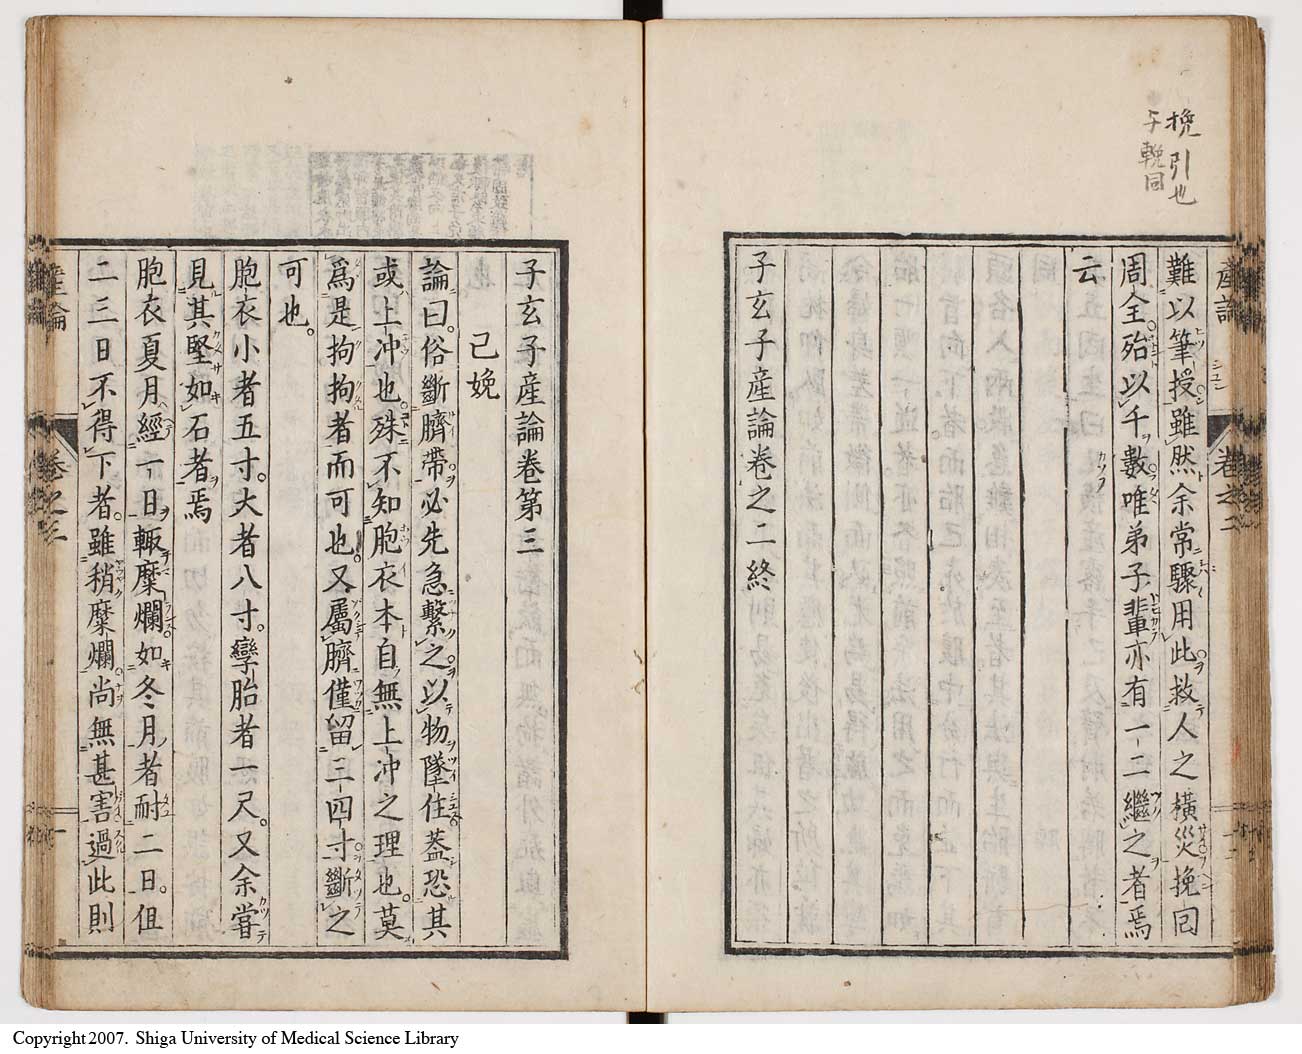 挽引也
与輓同
産論
卷之二
難以筆授雖然余常驟用此救人之横災挽回
周全殆以千數唯弟子輩亦有一二繼之者焉
云
子玄子産論卷之二終
子玄子産論卷第三
已娩
論曰。俗斷臍帶必先急繫之以物墜住蓋恐其
或上冲也。殊不知胞衣本自無上冲之理也。莫
爲是拘拘者而可也。又屬臍僅留三四寸斷之
可也。
胞衣小者五寸。大者八寸。孿胎者一尺。又余嘗
見其堅如石者焉
胞衣夏月經一日輙糜爛如冬月者耐二日。但
二三日不得下者。雖稍糜爛。尚無甚害過此則
産論
卷之三
一
Copyright 2007. Shiga University of Medical Science Library